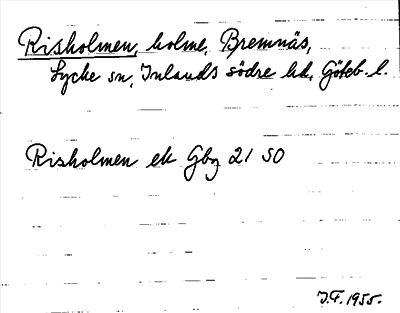 Risholmen, holme, Bremnäs,
Lycke sn, Inlands södre hd, Göteb. l.
Risholmen ek Gbg 21 SO
J.F. 1955.